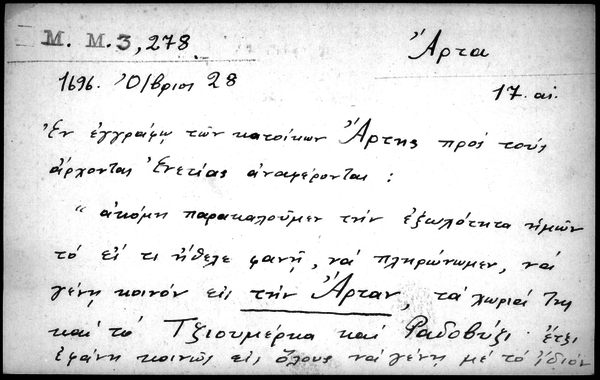 Μ. Μ. 3, 278
Ἄρτα
1696. Ὀ/βριος 28
17. αἰ.
Ἐν ἐγγράφῳ τῶν κατοίκων Ἄρτης πρός τούς
ἄρχοντας Ἐνετίας ἀναφέρονται :
" ἀκόμη παρακαλοῦμεν τήν ἐξωλότητα ἡμῶν
τό εἴ τι ἤθελε φανῆ, νά πληρώνωμεν, νά
γένῃ κοινόν εἰς τήν Ἄρταν, τά χωριά της
καί τό Τζιουμέρκα καί Ραδοβύζι ἔτζι
ἐφάνη κοινῶς εἰς ὅλους νά γένῃ μέ τό ἴδιόν